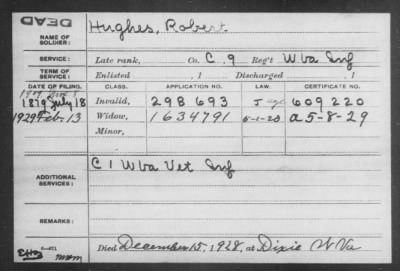 DEAD
NAME OF SOLDIER: Hughes, Robert.
SERVICE: Late rank, Co. C. 9 Reg't W.Va Inf
TERM OF SERVICE: Enlisted , 1 Discharged , 1
DATE OF FILING. CLASS. APPLICATION NO. LAW. CERTIFICATE NO.
1879 July 18 Invalid, 298 693 J 609 220
1929 Feb. 13 Widow, 1634791 5-1-20 a 5-8-29
Minor,
ADDITIONAL SERVICES: C 1 W Va Vet Inf
REMARKS:
Died December 15, 1928, at Dixie W Va